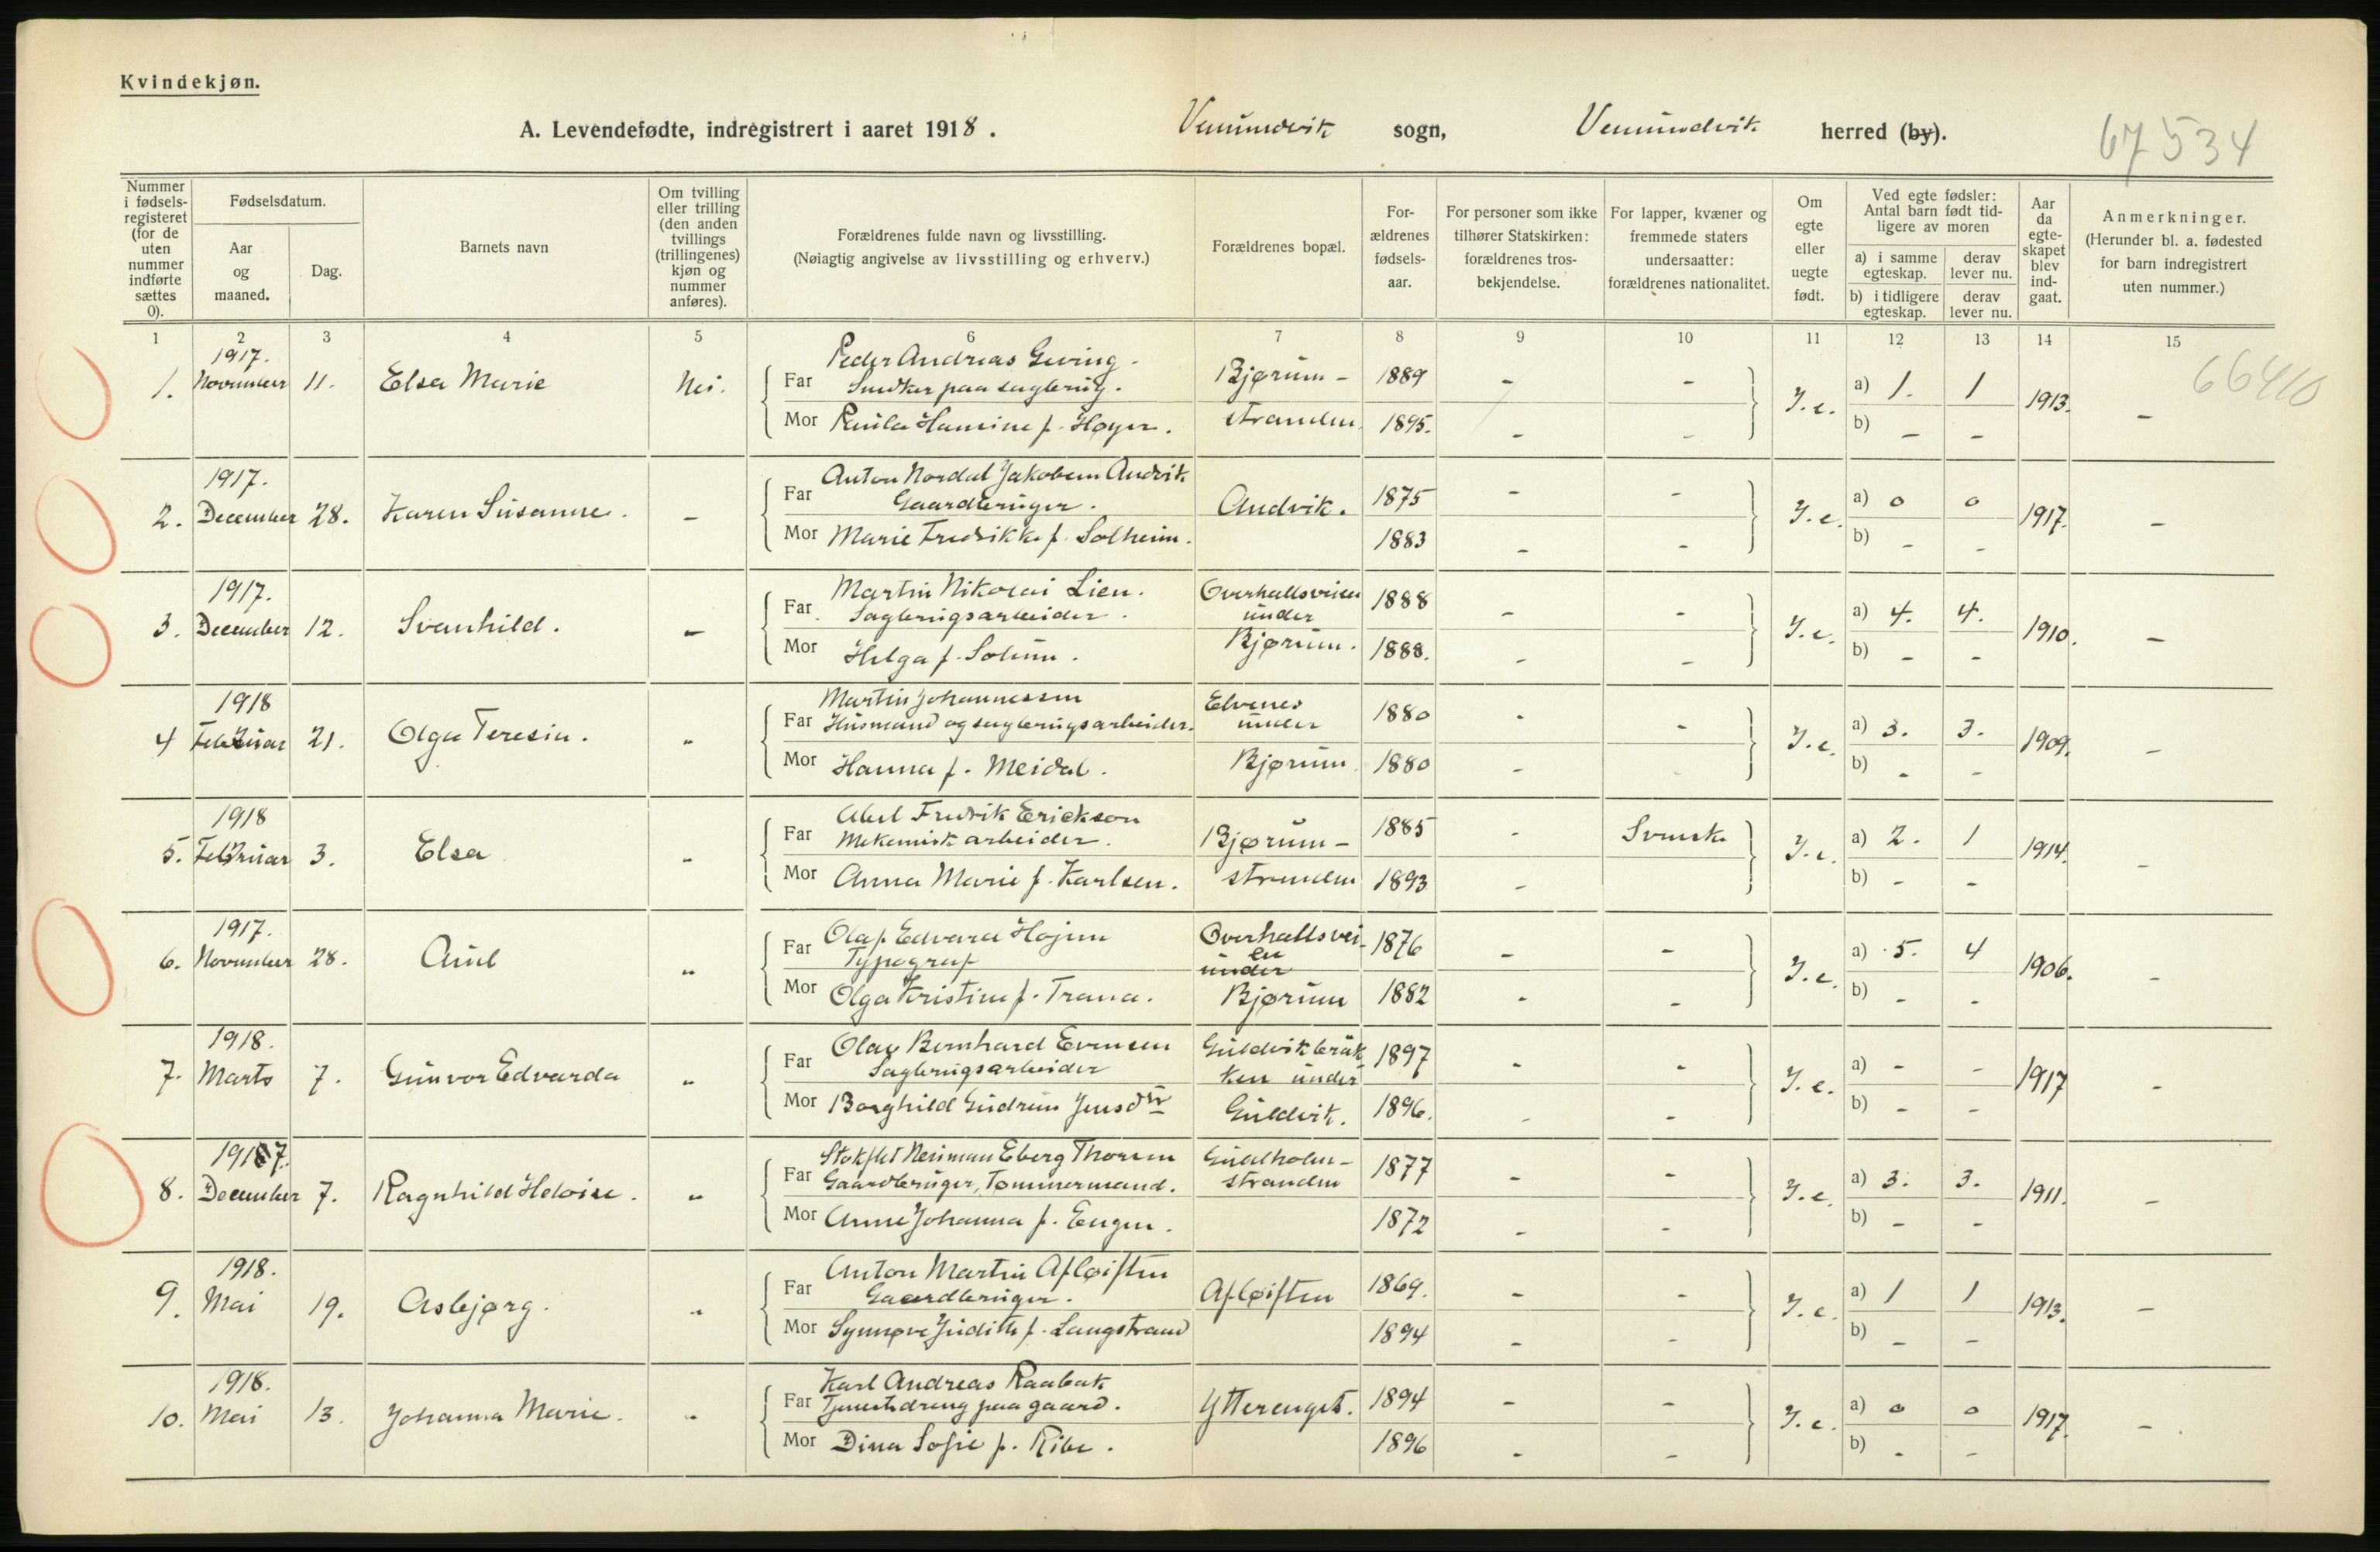 Kvindekjøn.
A. Levendefødte, indregistrert i aaret 1918. Vemundvik sogn, Vemundvik herred (by).
67534
Nummer i fødsels-registeret (for de uten nummer indførte sættes 0).
Fødselsdatum.
Aar og maaned.
Dag.
Barnets navn
Om tvilling eller trilling (den anden tvillings (trillingenes) kjøn og nummer anføres).
Forældrenes fulde navn og livsstilling.
(Nøiagtig angivelse av livsstilling og erhverv.)
Forældrenes bopæl.
For-ældrenes fødsels-aar.
For personer som ikke tilhører Statskirken: forældrenes tros-bekjendelse.
For lapper, kvæner og fremmede staters undersaatter: forældrenes nationalitet.
Om egte eller uegte født.
Ved egte fødsler: Antal barn født tid-ligere av moren
a) i samme egteskap.
derav lever nu.
b) i tidligere egteskap.
derav lever nu.
Aar da egte-skapet blev ind-gaat.
Anmerkninger.
(Herunder bl. a. fødested for barn indregistrert uten nummer.)
1 2 3 4 5 6 7 8 9 10 11 12 13 14 15
66410
1917. Peder Andreas Geving.
1. November 11. Elsa Marie Nei. Far Snedker paa sagbrug. Bjørum- 1889 - - J.e. a) 1. 1 1913. -
Mor Paula Hansine f. Høyer. stranden 1895. - - b) - -
1917. Anton Nordal Jakobsen Andvik
2. December 28. Karen Susanne. - Far Gaardbruger. Andvik. 1875 - - J.e. a) 0 0 1917. -
Mor Marie Fredrikke f. Solheim. 1883 - - b) - -
1917. Martin Nikolai Lien. Overhallsveien
3. December 12. Svanhild. - Far Sagbrugsarbeider. under 1888 - - J.e. a) 4. 4. 1910. -
Mor Helga f. Solum. Bjørum. 1888. - - b) - -
1918 Martin Johannessen Elvenes
4 Februar 21. Olga Teresia. " Far Husmand og sagbrugsarbeider. under 1880 - - J.e. a) 3. 3. 1909. -
Mor Hanna f. Meidal. Bjørum 1880 - b) - -
1918 Abel Fredrik Erickson
5. Februar 3. Elsa " Far Mekanisk arbeider. Bjørum- 1885 - Svensk J.e. a) 2. 1 1914. -
Mor Anna Marie f. Karlsen. stranden 1893 - b) - -
1917. Olaf Edvard Højem Overhallsvei-
6. November 28. Aud " Far Typograf en under 1876 - - J.e. a) 5. 4 1906. -
Mor Olga Kristine f. Trana. Bjørum 1882 - - b) - -
1918. Olav Bernhard Evensen Guldvikbrak
7. Marts 7. Gunvor Edvarda " Far Sagbrugsarbeider ken under 1897 - - J.e. a) - - 1917 -
Mor Borghild Gudrun Jensdtr Guldvik. 1896. - - b) - -
1917. Eberg Thorsen
8. December 7. Ragnhild Heloise. " Far Gaardbruger, Tømmermand. stranden 1877 - - J.e. a) 3. 3. 1911. -
Mor Anne Johanna f. Engen. 1872 - - b) - -
1918. Anton Martin Afløiften
9. Mai 19. Asbjørg. " Far Gaardbruger. Afløiften 1869. - - J.e. a) 1 1 1913. -
Mor Synnøve Judith f. Langstrand 1894 - - b) - -
1918. Karl Andreas Raabak
10. Mai 13. Johanna Marie. " Far Tjenestdreng paa gaard. Ytterenget. 1894 - - J.e. a) 0 0 1917. -
Mor Dina Sofie f. Ribe. 1896 - - b) - -